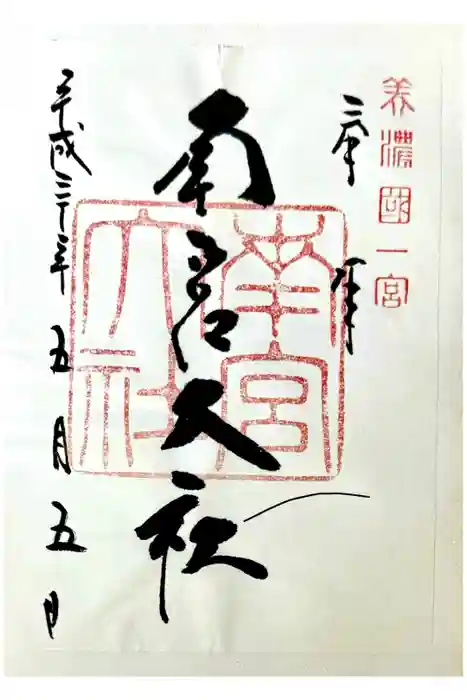 美濃國一宮
奉拝
南宮大社
南宮
大社
平成三十年五月五日